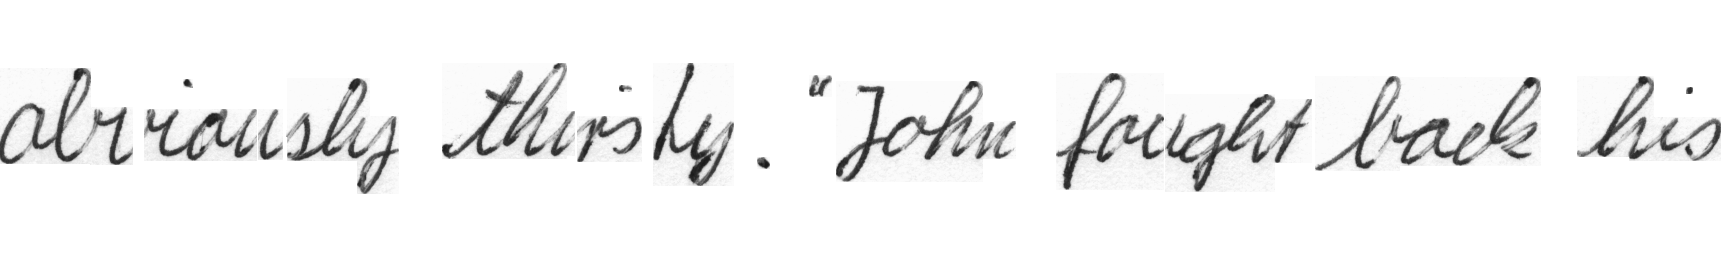 obviously thirsty. "John fought back his